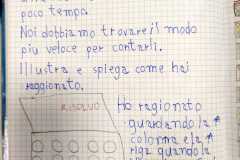 poco tempo.
Noi dobbiamo trovare il modo
più veloce per contarli.
Illustra e spiega come hai
raggionato.
RISOLVO
Ho ragionato
guardando la
colorma e la
riga quando la